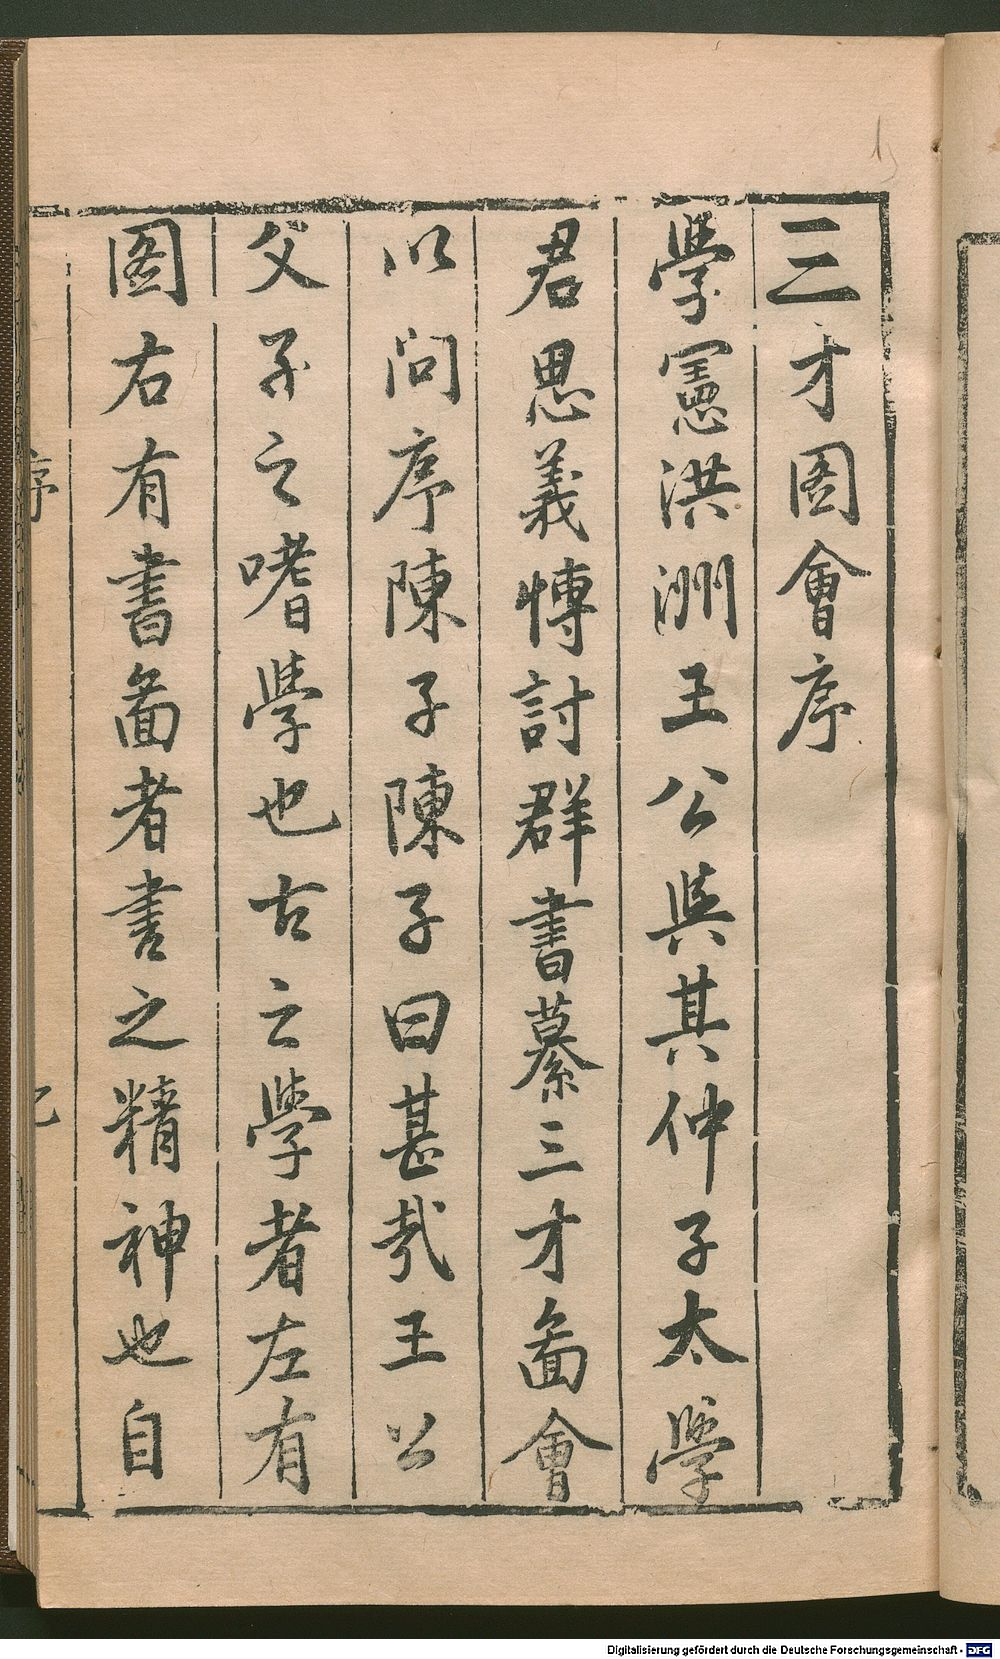 三才图會序
學憲洪洲王公與其仲子太學
君思義慱討群書纂三才啚會
以问序陳子陳子曰甚哉王公
父子之嗜學也古之學者左有
图右有書啚者書之精神也自
序
Digitalisierung gefördert durch die Deutsche Forschungsgemeinschaft - DFG